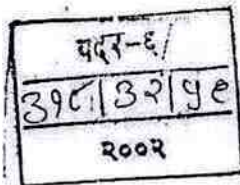 वदर-६/
३१८ | ३२ | ५९
२००२